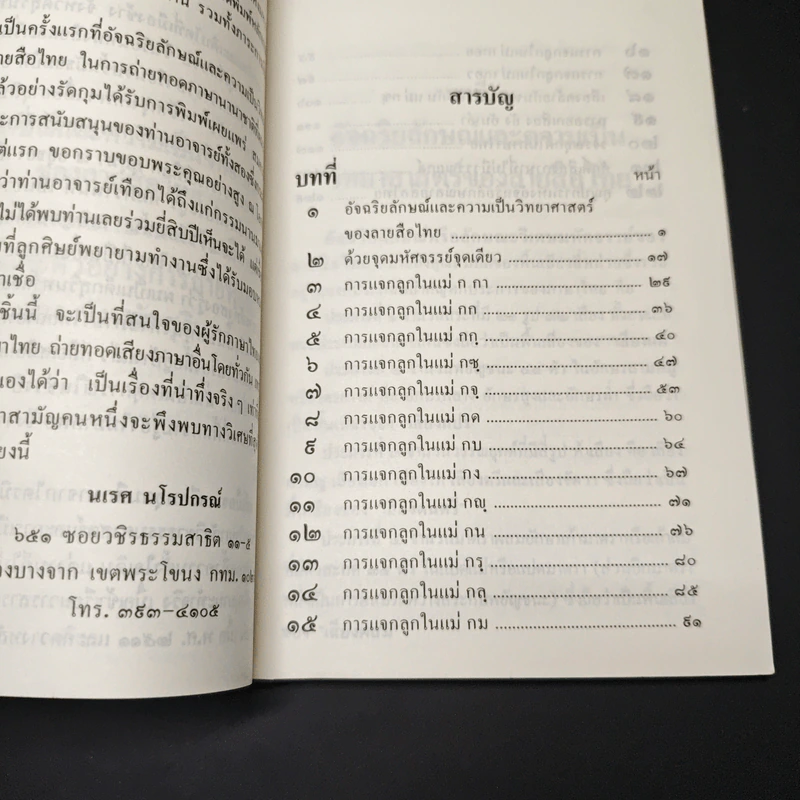 น รวมทั้งภาระ
เป็นครั้งแรกที่อัจฉริยลักษณ์และความเป็น
ายสือไทย ในการถ่ายทอดภาษานานาชาติ
ล้วอย่างรัดกุมได้รับการพิมพ์เผยแพร่
ะการสนับสนุนของท่านอาจารย์ทั้งสองซึ่ง
ต่แรก ขอกราบขอบพระคุณอย่างสูง ณ
ว่าท่านอาจารย์เทือกได้ถึงแก่กรรม
ไม่ได้พบท่านเลยร่วมยี่สิบปีเห็นจะได้
ที่ลูกศิษย์พยายามทำงานซึ่งได้รับมอบ
าเชื่อ
ชิ้นนี้ จะเป็นที่สนใจของผู้รักภาษาไทย
าไทย ถ่ายทอดเสียงภาษาอื่นโดยทั่วกัน
เองได้ว่า เป็นเรื่องที่น่าทึ่งจริง ๆ
าสามัญคนหนึ่งจะพึงพบทางวิเศษที่
ยงนี้
นเรศ นโรปกรณ์
๖๕๑ ซอยวชิรธรรมสาธิต ๑๑-๕
งบางจาก เขตพระโขนง กทม.
โทร. ๓๙๓-๔๑๐๕
สารบัญ
บทที่ หน้า
๑ อัจฉริยลักษณ์และความเป็นวิทยาศาสตร์
ของลายสือไทย ๑
๒ ด้วยจุดมหัศจรรย์จุดเดียว ๑๗
๓ การแจกลูกในแม่ ก กา ๒๙
๔ การแจกลูกในแม่ กก ๓๖
๕ การแจกลูกในแม่ กกฺ ๔๐
๖ การแจกลูกในแม่ กซฺ ๔๗
๗ การแจกลูกในแม่ กจฺ ๕๓
๘ การแจกลูกในแม่ กด ๖๐
๙ การแจกลูกในแม่ กบ ๖๔
๑๐ การแจกลูกในแม่ กง ๖๗
๑๑ การแจกลูกในแม่ กญฺ ๗๑
๑๒ การแจกลูกในแม่ กน ๗๖
๑๓ การแจกลูกในแม่ กรฺ ๘๐
๑๔ การแจกลูกในแม่ กลฺ ๘๕
๑๕ การแจกลูกในแม่ กม ๙๑